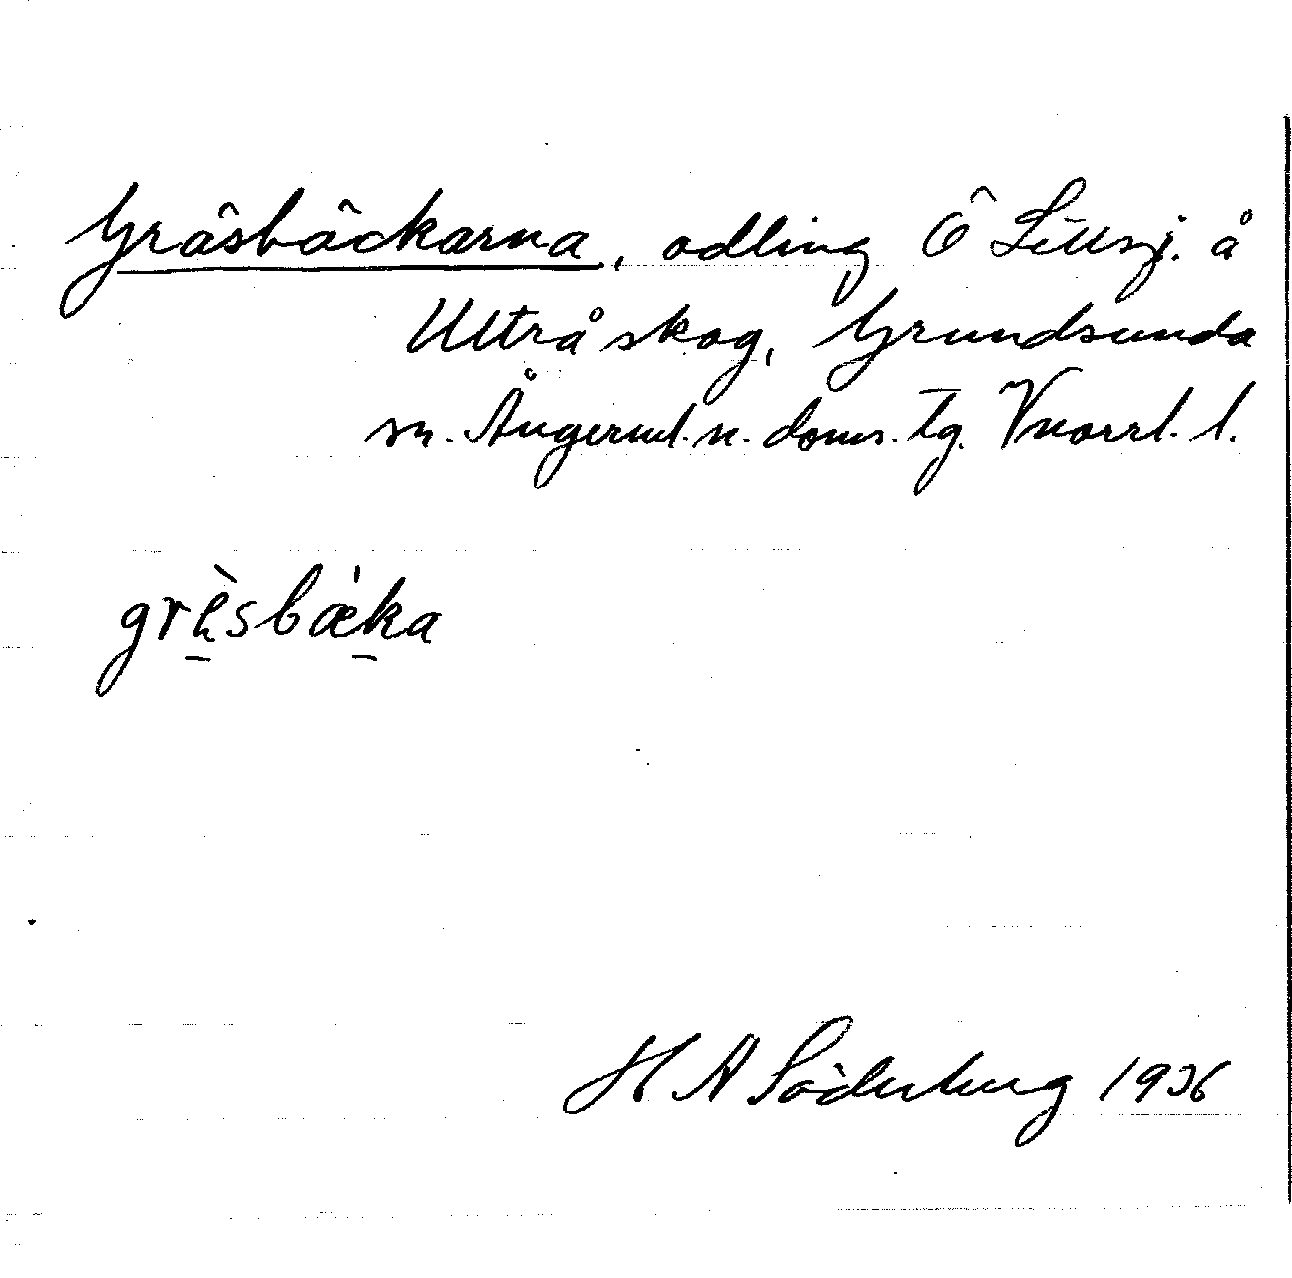 Gräsbäckarna, odling Ö Lillsj. å
Ultrå skog, Grundsunda
sn. Ångerml. n. doms. tg. Vnorrl. l.
grèsbæ̀ka
H A Söderberg 1936